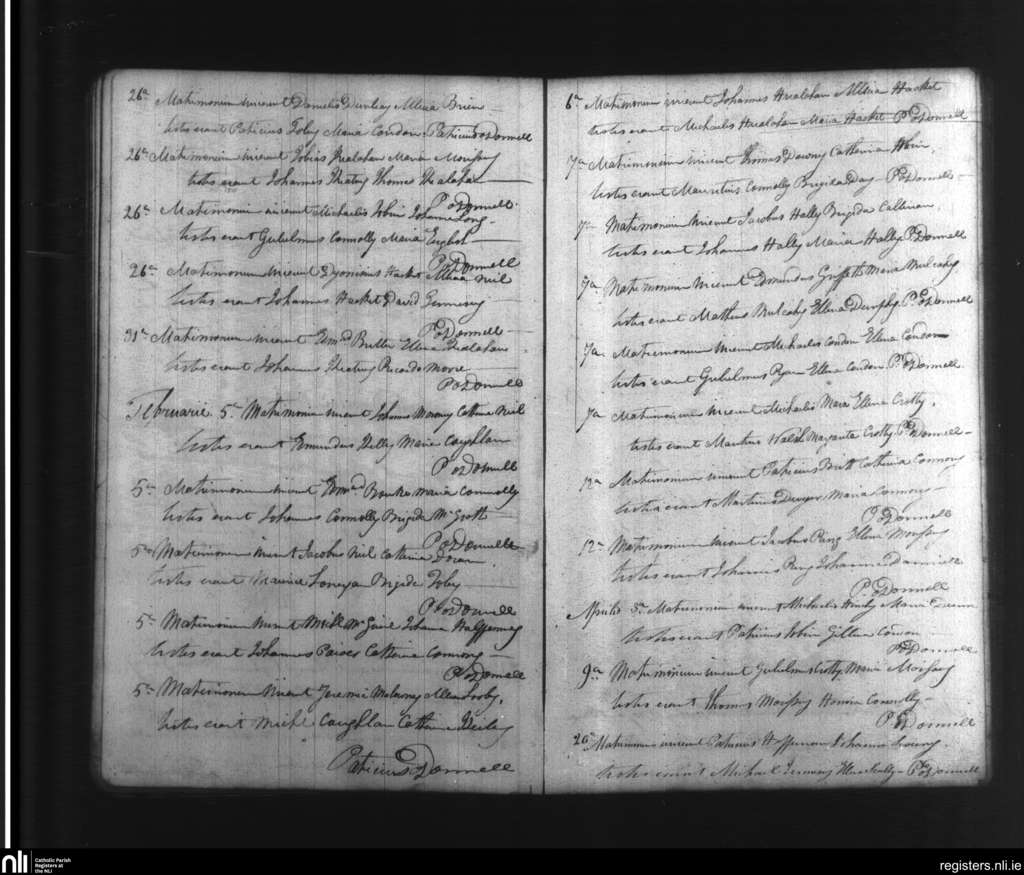 26a Matrimonium inierunt Daniel Dunlay Ellena Brien
testes erant Patricius Foley Maria Condon Patricius ODonnell
26a Matrimonium inierunt Tobias Healahan Maria Morissy
testes erant Johannes Keating Thomas Healahan
P ODonnell
26a Matrimonium inierunt Michaelis Tobin Johanna Long
testes erant Gulielmus Connolly Maria English
P ODonnell
26a Matrimonium inierunt Dyonisius Hacket Ellena Neil
testes erant Johannes Hacket David
P ODonnell
31a Matrimonium inierunt Edmd Butler Ellena Healahan
testes erant Johannes Keating Ricardo Moore
P ODonnell
Februarie 5 Matrimonium inierunt Johannes Catherina Neil
testes erant Edmundus Kelly Maria Coughlan
P ODonnell
5a Matrimonium inierunt Edmd Bourke Maria Connolly
testes erant Johannes Connolly Brigida McGrath
P ODonnell
5a Matrimonium inierunt Jacobus Neil Catherina Doran
testes erant Maurice Brigida Foley
P ODonnell
5a Matrimonium inierunt Mick Johanna
testes erant Johannes Power Catherina
P ODonnell
5a Matrimonium inierunt Jeremie Mulrony
testes erant Michl Coughlan Catherina
Patricius ODonnell
6a Matrimonium inierunt Johannes Healahan Ellena Hacket
testes erant Michaelis Healahan Maria Hacket P ODonnell
7a Matrimonium inierunt Thomas Downy Catherina Tobin
testes erant Mauritius Connolly Brigida Day P ODonnell
7a Matrimonium inierunt Jacobus Hally Brigida Callinan
testes erant Johannes Hally Maria Hally P ODonnell
7a Matrimonium inierunt Edmundus Griffith Maria Mulcahy
testes erant Matheus Mulcahy Ellena Dunphy P ODonnell
7a Matrimonium inierunt Michaelis Condon Ellena Condon
testes erant Gulielmus Ryan Ellena Condon P ODonnell
7a Matrimonium inierunt Michaelis Mara Ellena Crotty
testes erant Martinus Walsh Margarita Crotty P ODonnell
12a Matrimonium inierunt Patricius Britt Catherina Connory
testes erant Martinus Dwyer Maria Connory
P ODonnell
12a Matrimonium inierunt Jacobus Ellena Morissy
testes erant Johannes Johanna
P ODonnell
Aprilis 5a Matrimonium inierunt Michaelis Maria
testes erant Patricius Tobin
P ODonnell
9a Matrimonium inierunt Gulielmus Crotty Maria Morissy
testes erant Thomas Morissy Honora Connolly
P ODonnell
20a Matrimonium inierunt Patricius Heffernan Johanna
testes erant Michael Ellena Scully P ODonnell
nli
Catholic Parish
Registers at
the NLI
registers.nli.ie